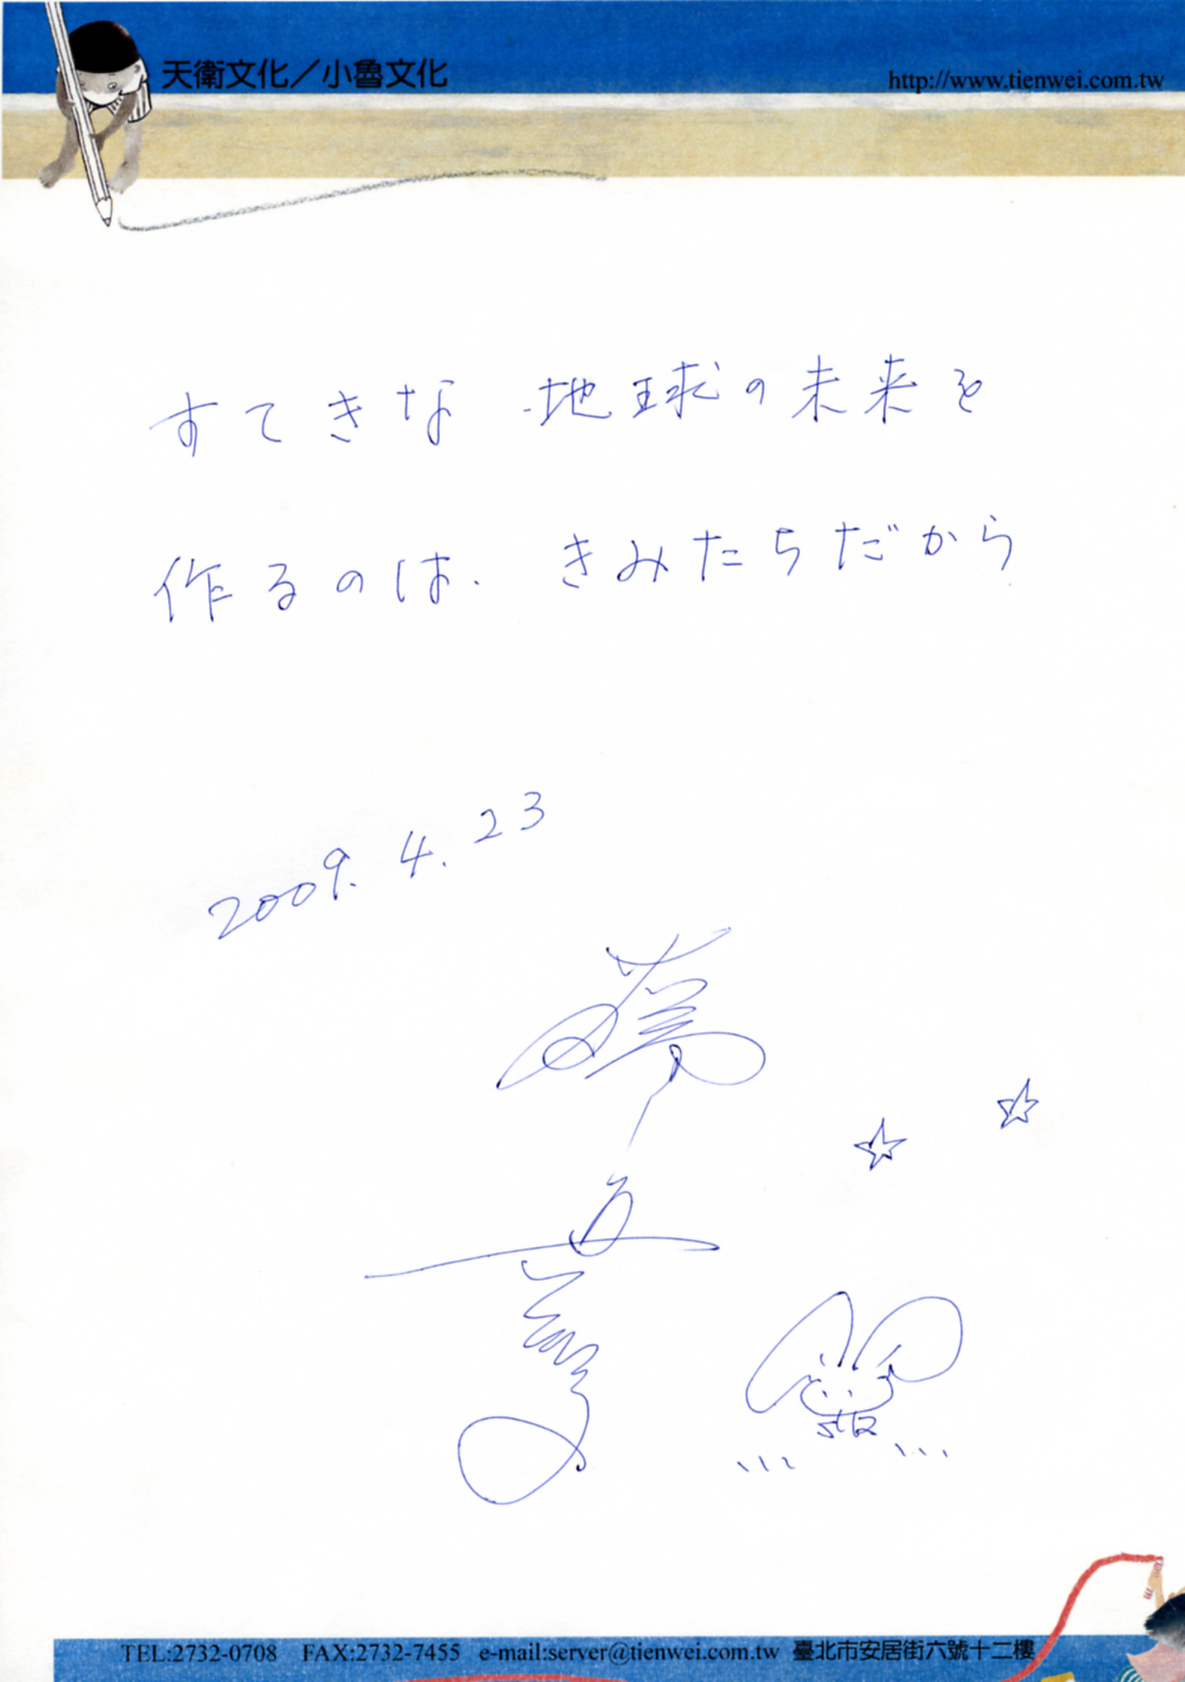 天衛文化／小魯文化
http://www.tienwei.com.tw
すてきな 地球の未来を
作るのは、きみたちだから
2009. 4. 23
TEL:2732-0708 FAX:2732-7455 e-mail:server@tienwei.com.tw 臺北市安居街六號十二樓